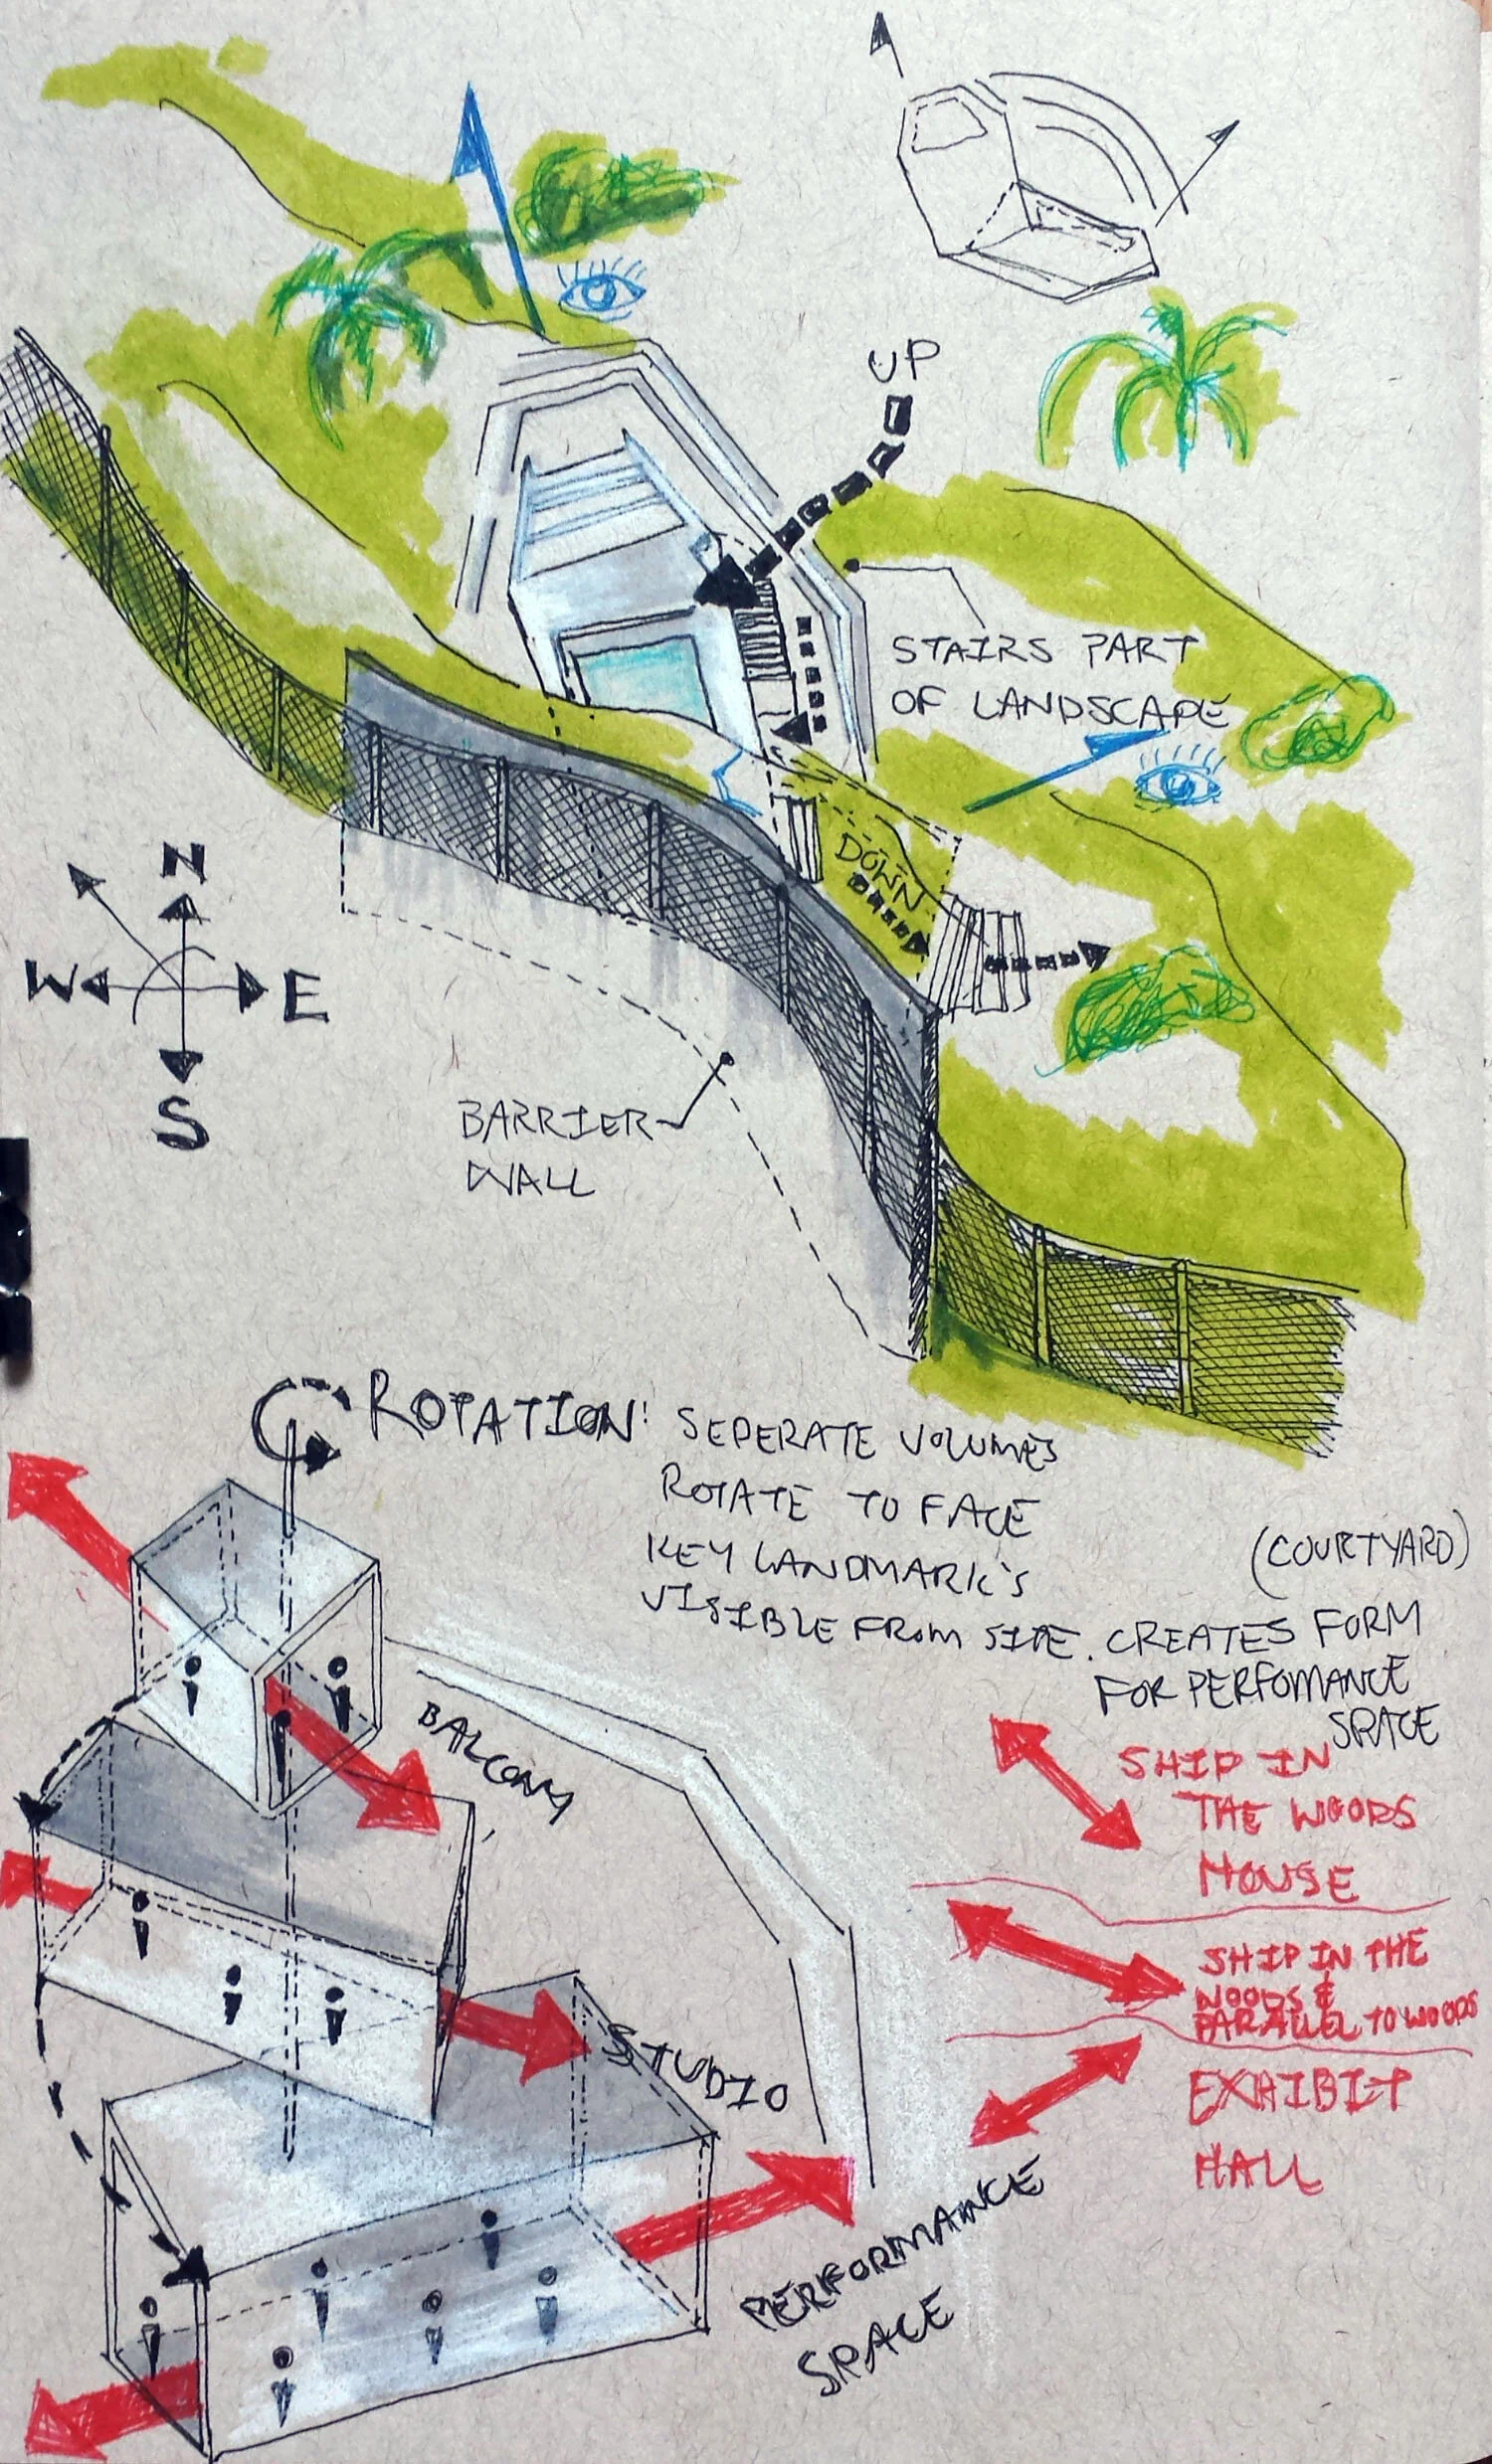 UP
STAIRS PART
OF LANDSCAPE
DOWN
N
W
E
S
BARRIER
WALL
ROTATION: SEPERATE VOLUMES
ROTATE TO FACE
KEY LANDMARK'S
VISIBLE FROM SITE. CREATES FORM
(COURTYARD)
FOR PERFOMANCE
SPACE
BALCONY
STUDIO
PERFORMANCE
SPACE
SHIP IN
THE WOODS
HOUSE
SHIP IN THE
WOODS &
PARALLEL TO WOODS
EXHIBIT
HALL